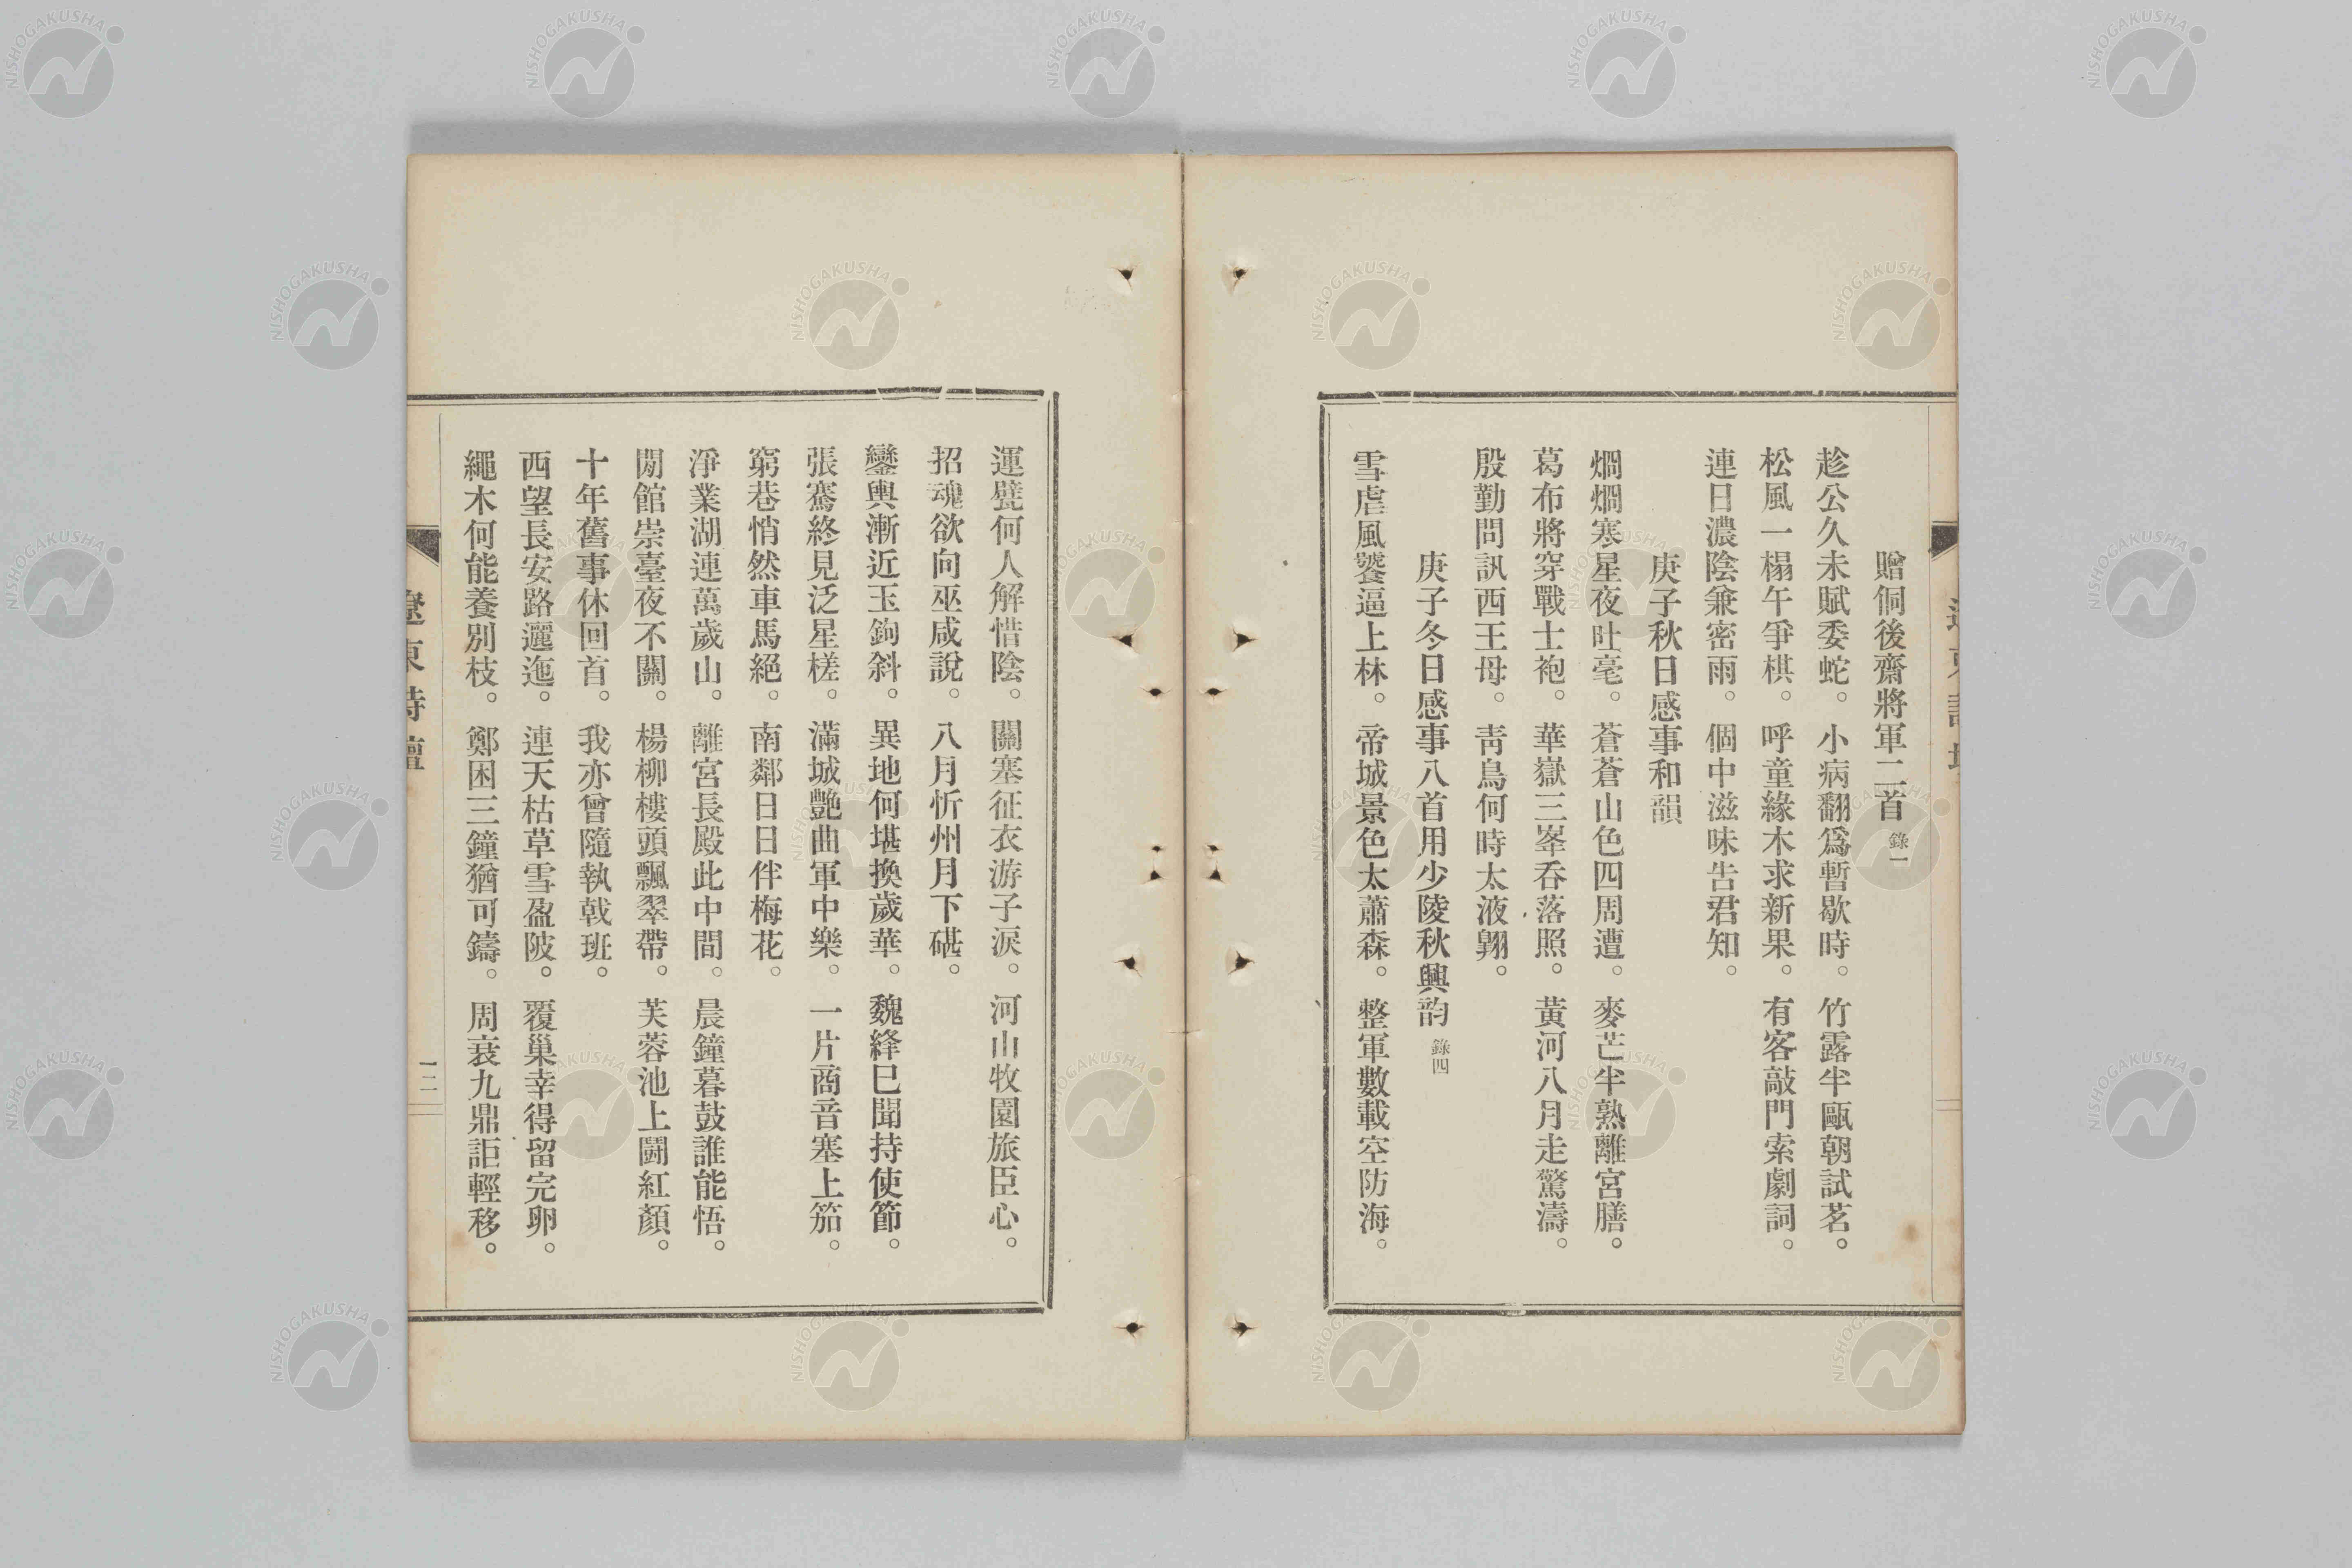 贈侗後齋將軍二首 錄一
趁公久未賦委蛇。小病翻爲暫歇時。竹露半甌朝試茗。
松風一榻午爭棋。呼童緣木求新果。有客敲門索劇詞。
連日濃陰兼密雨。個中滋味吿君知。
庚子秋日感事和韻
烱烱寒星夜吐毫。蒼蒼山色四周遭。麥芒半熟離宮膳。
葛布將穿戰士袍。華嶽三峯吞落照。黃河八月走驚濤。
殷勤問訊西王母。靑鳥何時太液翺。
庚子冬日感事八首用少陵秋興韵 錄四
雪虐風饕逼上林。帝城景色太蕭森。整軍數載空防海。
運甓何人解惜陰。關塞征衣游子淚。河山牧圉旅臣心。
招魂欲向巫咸說。八月忻州月下碪。
鑾輿漸近玉鉤斜。異地何堪換歲華。魏絳巳聞持使節。
張騫終見泛星槎。滿城艷曲軍中樂。一片商音塞上笳。
窮巷悄然車馬絕。南鄰日日伴梅花。
淨業湖連萬歲山。離宮長殿此中間。晨鐘暮鼓誰能悟。
閒館崇臺夜不關。楊柳樓頭飄翠帶。芙蓉池上鬪紅顏。
十年舊事休回首。我亦曾隨執戟班。
西望長安路邐迤。連天枯草雪盈陂。覆巢幸得留完卵。
繩木何能養別枝。鄭困三鐘猶可鑄。周衰九鼎詎輕移。
遼東詩壇
一二
NISHOGAKUSHA